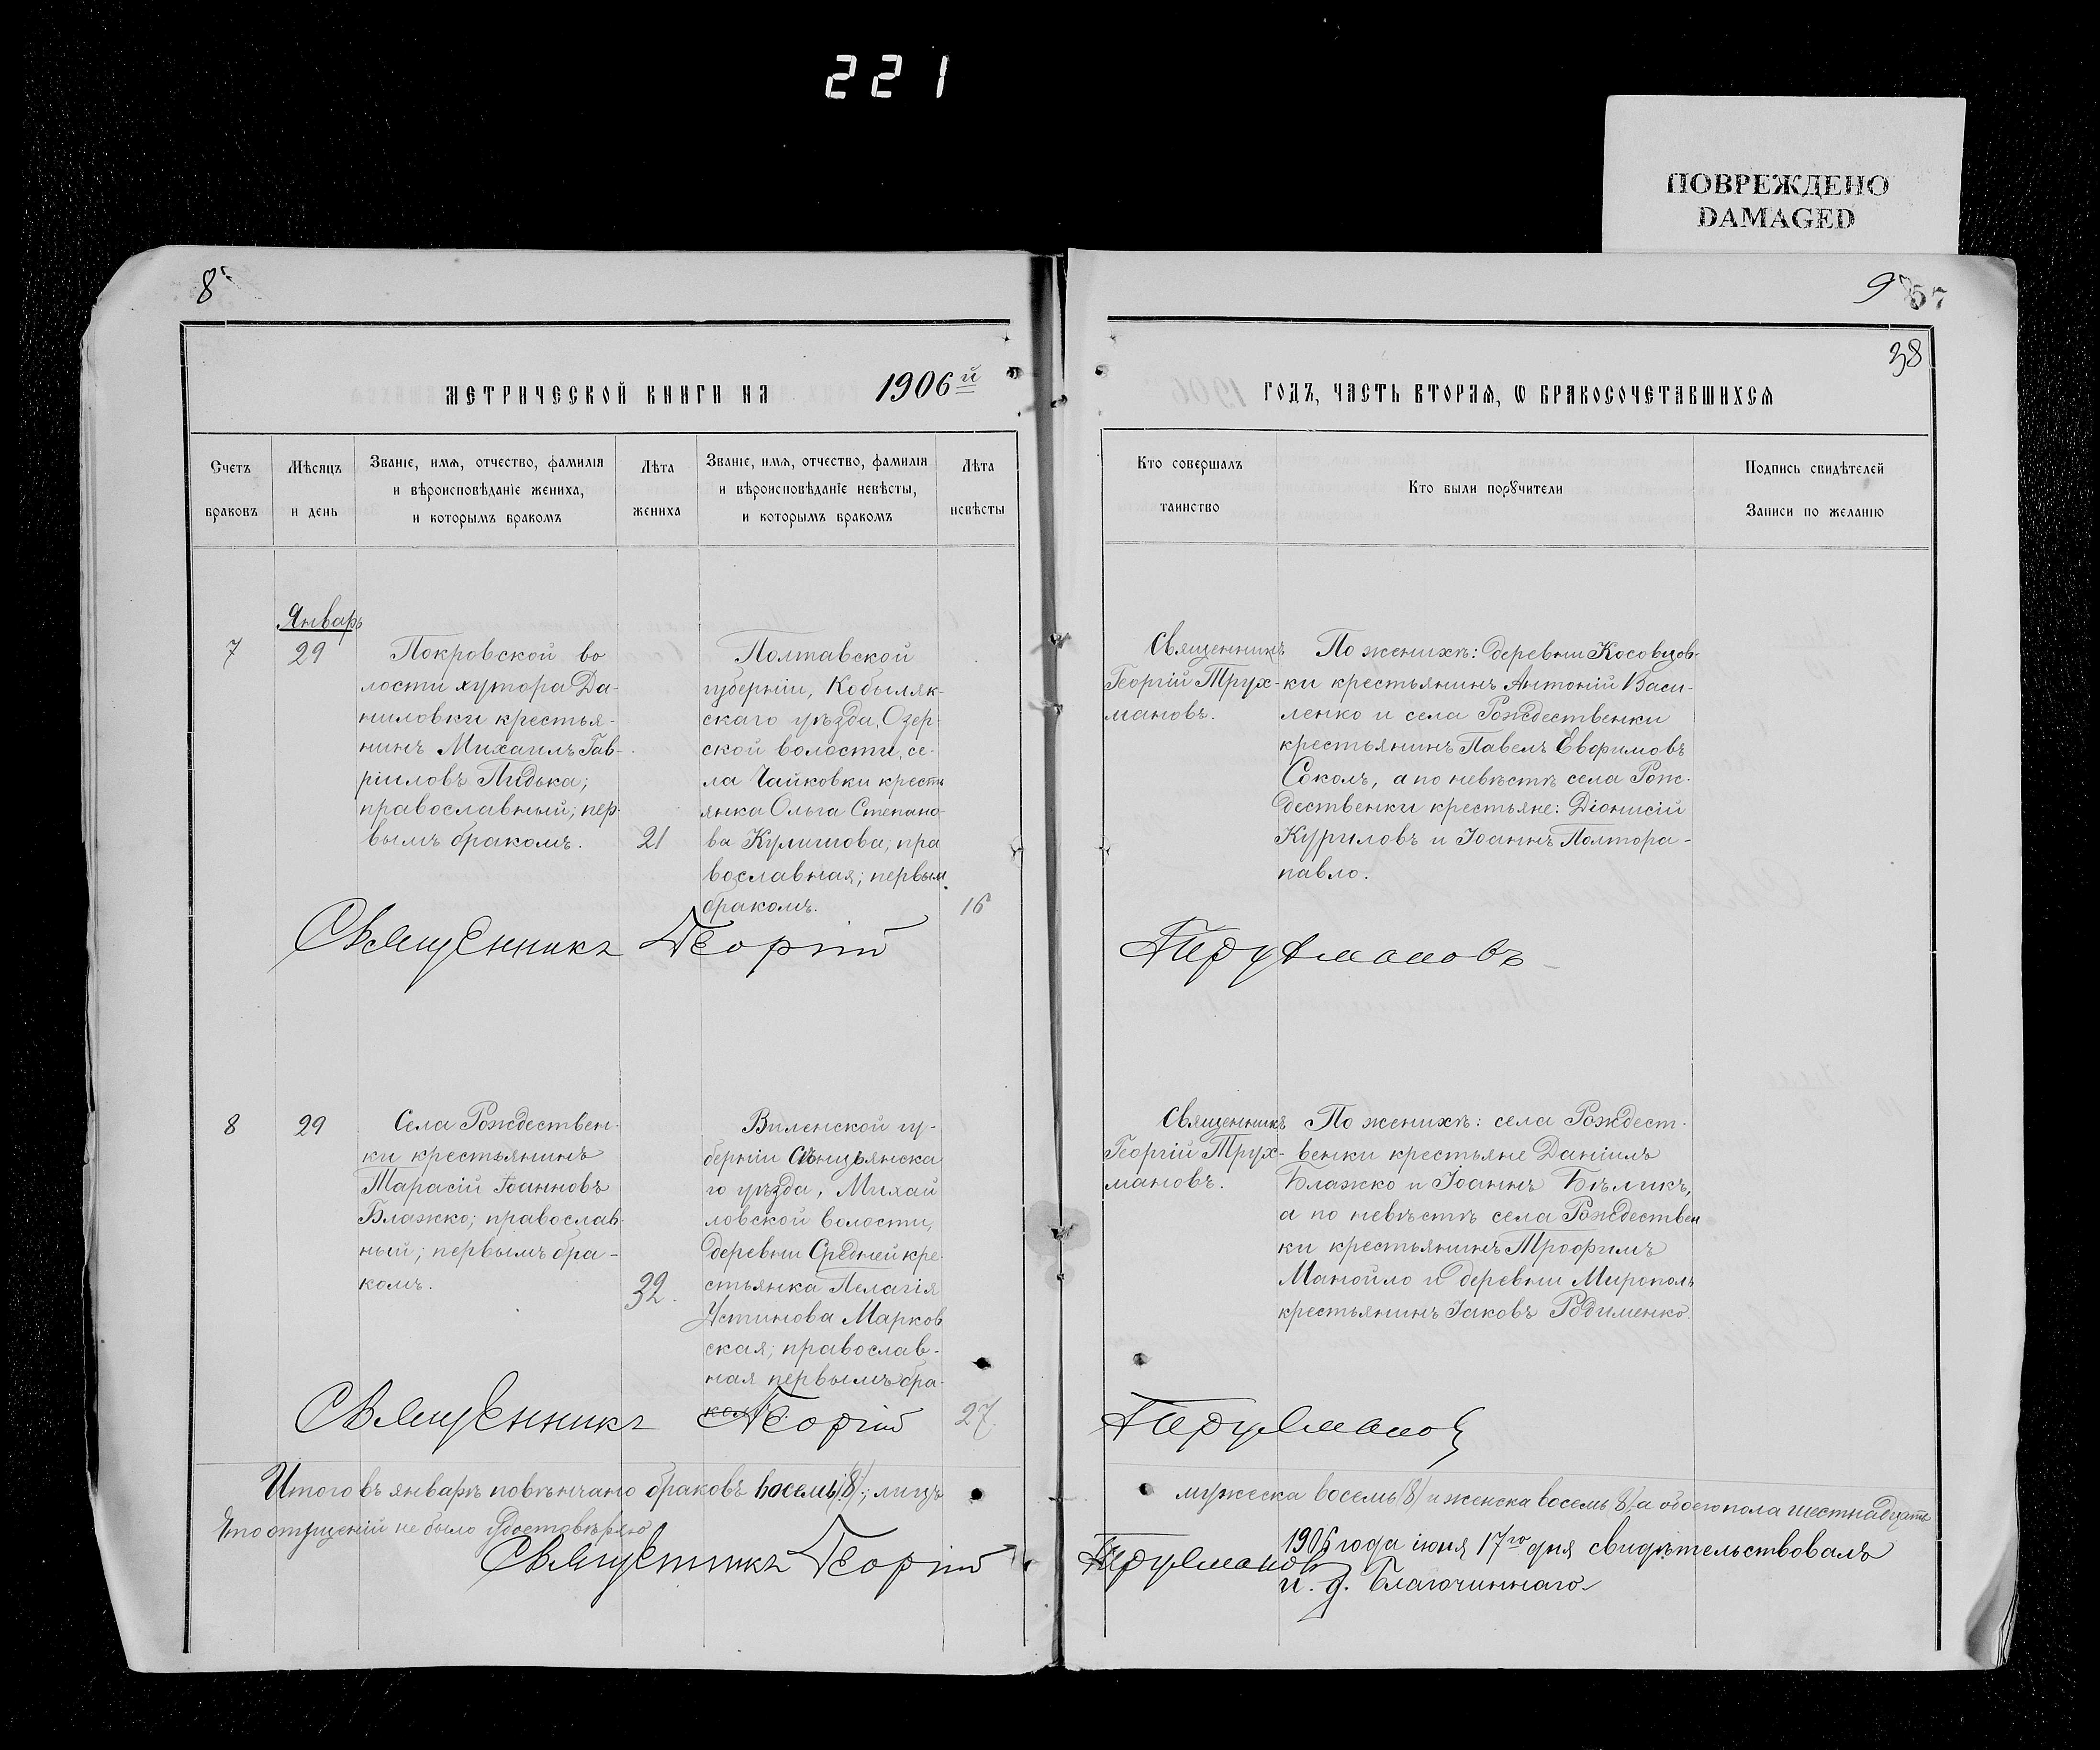 221
ПОВРЕЖДЕНО
DAMAGED
8
9
57
38
МЕТРИЧЕСКОЙ КНИГИ НА 1906й
ГОДЪ, ЧАСТЬ ВТОРАѦ, Ѡ БРАКОСОЧЕТАВШИХСѦ
Счетъ
браковъ
Мѣсяцъ
и день
Званіе, имя, отчество, фамилія
и вѣроисповѣданіе жениха,
и которымъ бракомъ
Лѣта
жениха
Званіе, имя, отчество, фамилія
и вѣроисповѣданіе невѣсты,
и которымъ бракомъ
Лѣта
невѣсты
Кто совершалъ
таинство
Кто были порꙋчители
Подпись свидѣтелей
Записи по желанію
Январь
7
29
Покровской во
лости хутора Да-
ниловки крестья-
нинъ Михаилъ Гав-
ріиловъ Пидька;
православный; пер-
вымъ бракомъ.
21
Полтавской
губерніи, Кобыляк-
скаго уѣзда, Озер-
ской волости, се-
ла Чайковки кресть
янка Ольга Степано
ва Кулишова; пра
вославная; первым
бракомъ.
16
Священникъ
Георгій Трух-
мановъ.
По женихѣ: деревни Косовцов-
ки крестьянинъ Антоній Васи-
ленко и села Рождественки
крестьянинъ Павелъ Евфимовъ
Соколъ, а по невѣстѣ села Рож-
дественки крестьяне: Діонисій
Куриловъ и Іоаннъ Полтора-
павло.
Священникъ Георгій Трухмановъ
8
29
Села Рождествен-
ки крестьянинъ
Тарасій Іоанновъ
Блажко; православ-
ный; первымъ бра-
комъ.
32.
Виленской гу-
берніи Свенцьянска
го уѣзда, Михай
ловской волости,
деревни Средней кре-
стьянка Пелагія
Устинова Марков
ская; православ-
ная первымъ бра-
комъ.
27.
Священникъ
Георгій Трух-
мановъ.
По женихѣ: села Рождест-
венки крестьяне Даніилъ
Блажко и Іоаннъ Бѣликъ,
а по невѣстѣ села Рождествен
ки крестьянинъ Трофимъ
Манойло и деревни Мирополь
крестьянинъ Іаковъ Родименко.
Священникъ Георгій Трухманов
Итого въ январѣ повѣнчано браковъ восемь /8/; лицъ мужеска восемь /8/ и женска восемь /8/, а обоего пола шестнадцать
Что опущеній не было удостовѣряю
Священникъ Георгій Трухманов
1906 года іюня 17го дня свидѣтельствовалъ
и. д. Благочиннаго